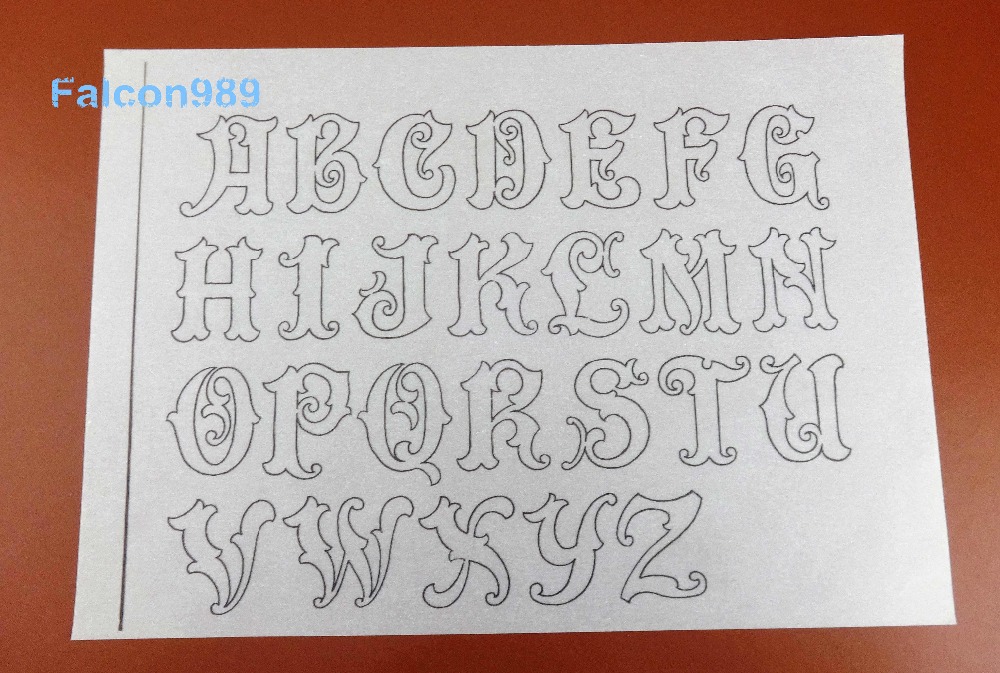 Falcon989
ABCDEFG
HIJKLMN
OPQRSTU
VWXYZ